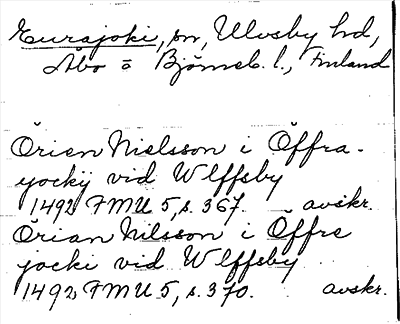 Eurajoki, sn, Ulvsby hd,
Åbo o Björneb. l., Finland
Örian Nielsson i Öffra-
yockij vid Wlffsby
1492 FMU 5, s. 367. avskr.
Örian Nilsson i Öffre
jocki vid Wlffsby
1492 FMU 5, s. 370. avskr.